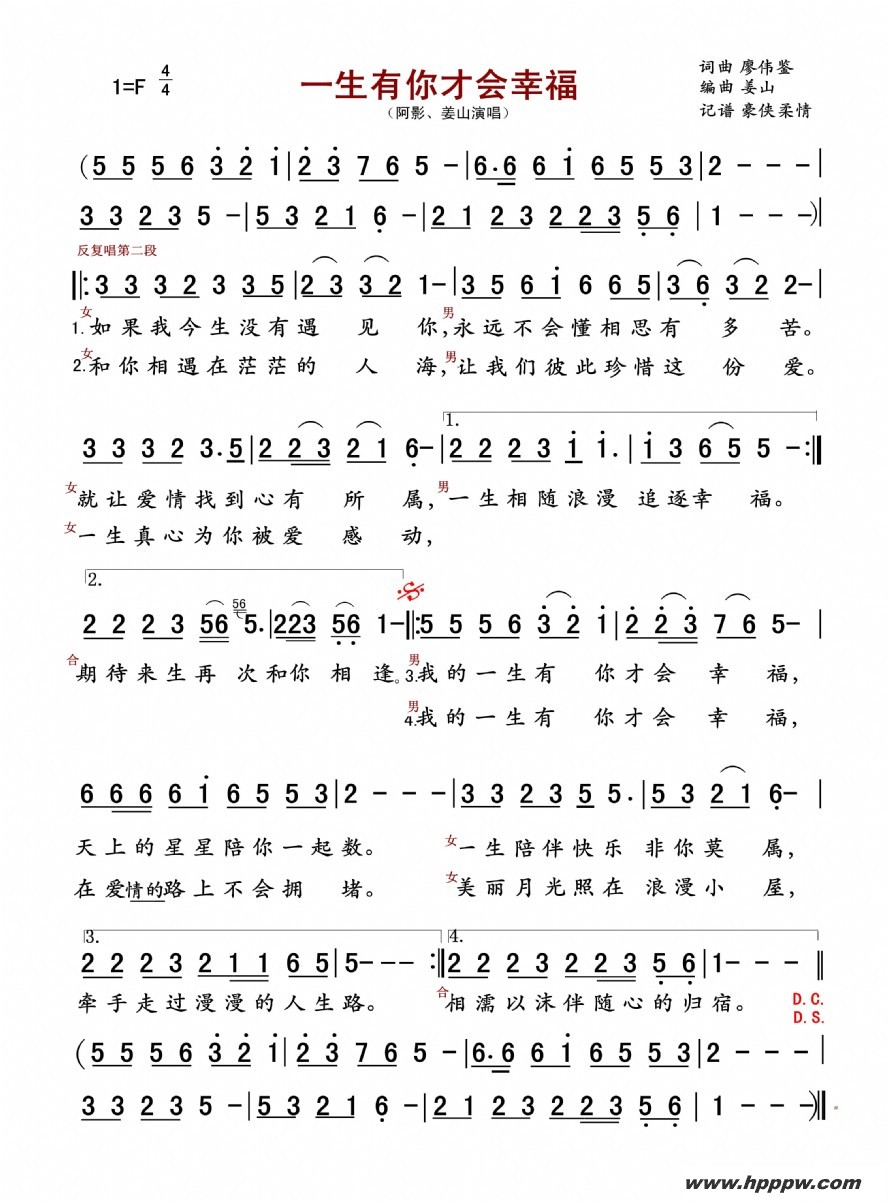 1=F 4/4
一生有你才会幸福
（阿影、姜山演唱）
词曲 廖伟鉴
编曲 姜山
记谱 豪侠柔情
(5 5 5 6 3 2 i|2 3 7 6 5 -|6·6 6 i 6 5 5 3|2 - - -|
3 3 2 3 5 -|5 3 2 1 6 -|2 1 2 3 2 2 3 5 6|1 - - -)|
反复唱第二段
‖:3 3 3 2 3 3 5|2 3 3 2 1-|3 5 6 i 6 5 5|3 6 3 2 2-|
女 1.如果我今生没有遇 见 你,男 永远不会懂相思有 多 苦。
女 2.和你相遇在茫茫的 人 海,男 让我们彼此珍惜这 份 爱。
1.
3 3 3 2 3·5|2 2 3 2 1 6-|2 2 2 3 i i·|i 3 6 5 5 -:‖
女 就让爱情找到心有 所 属,男 一生相随浪漫 追逐幸 福。
女 一生真心为你被爱 感 动,
2.
2 2 2 3 56 56 5·|223 56 1-‖:5 5 5 6 3 2 i|2 2 3 7 6 5-|
合 期待来生再 次和你 相 逢。男 3.我的一生有 你才会 幸 福,
男 4.我的一生有 你才会 幸 福,
6 6 6 6 i 6 5 5 3|2 - - -|3 3 2 3 5 5·|5 3 2 1 6-|
天上的星星陪你一起数。 女 一生陪伴快乐 非你莫 属,
在爱情的路上不会拥 堵。 女 美丽月光照在 浪漫小 屋,
3. 4.
2 2 2 3 2 1 1 6 5|5- - - :‖2 2 2 3 2 2 3 5 6|1- - - ‖
牵手走过漫漫的人生路。 合 相濡以沫伴随心的归宿。 D.C.
D.S.
(5 5 5 6 3 2 i|2 3 7 6 5 -|6·6 6 i 6 5 5 3|2 - - -|
3 3 2 3 5 -|5 3 2 1 6 -|2 1 2 3 2 2 3 5 6|1 - - -)‖
www.hpppw.com